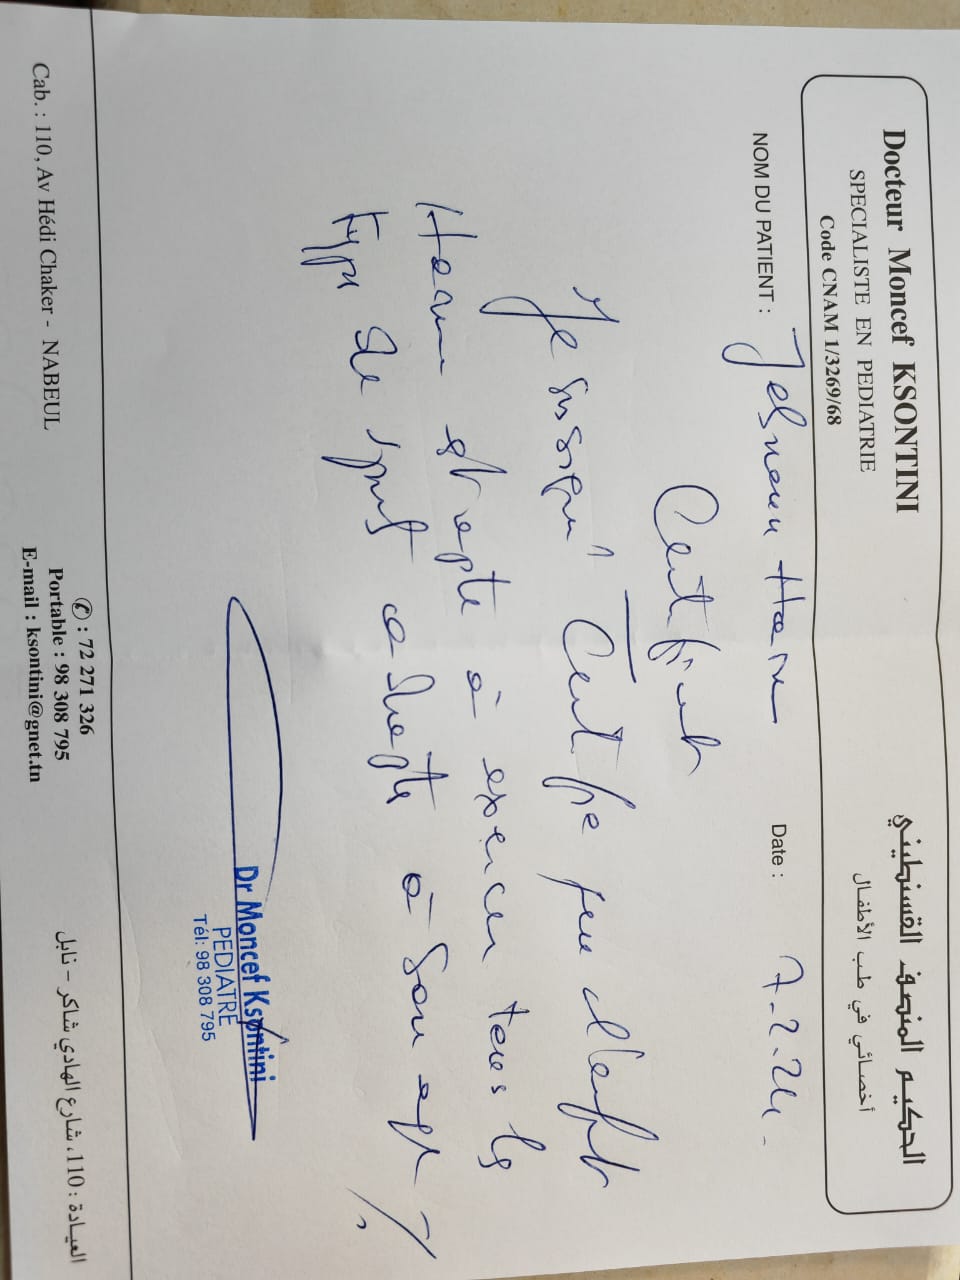 Docteur Moncef KSONTINI
SPECIALISTE EN PEDIATRIE
Code CNAM 1/3269/68
الحكيم المنصف القسنطيني
أخصائي في طب الأطفال
NOM DU PATIENT :
Date : 7.2.24.
Certificat
Je soussigné Certifie que l'enfant
est apte à exercer tous les
type de sport adapté à son age
Dr Moncef Ksontini
PEDIATRE
Tél: 98 308 795
Cab. : 110, Av Hédi Chaker - NABEUL
✆ : 72 271 326
Portable : 98 308 795
E-mail : ksontini@gnet.tn
العيادة : 110، شارع الهادي شاكر - نابل